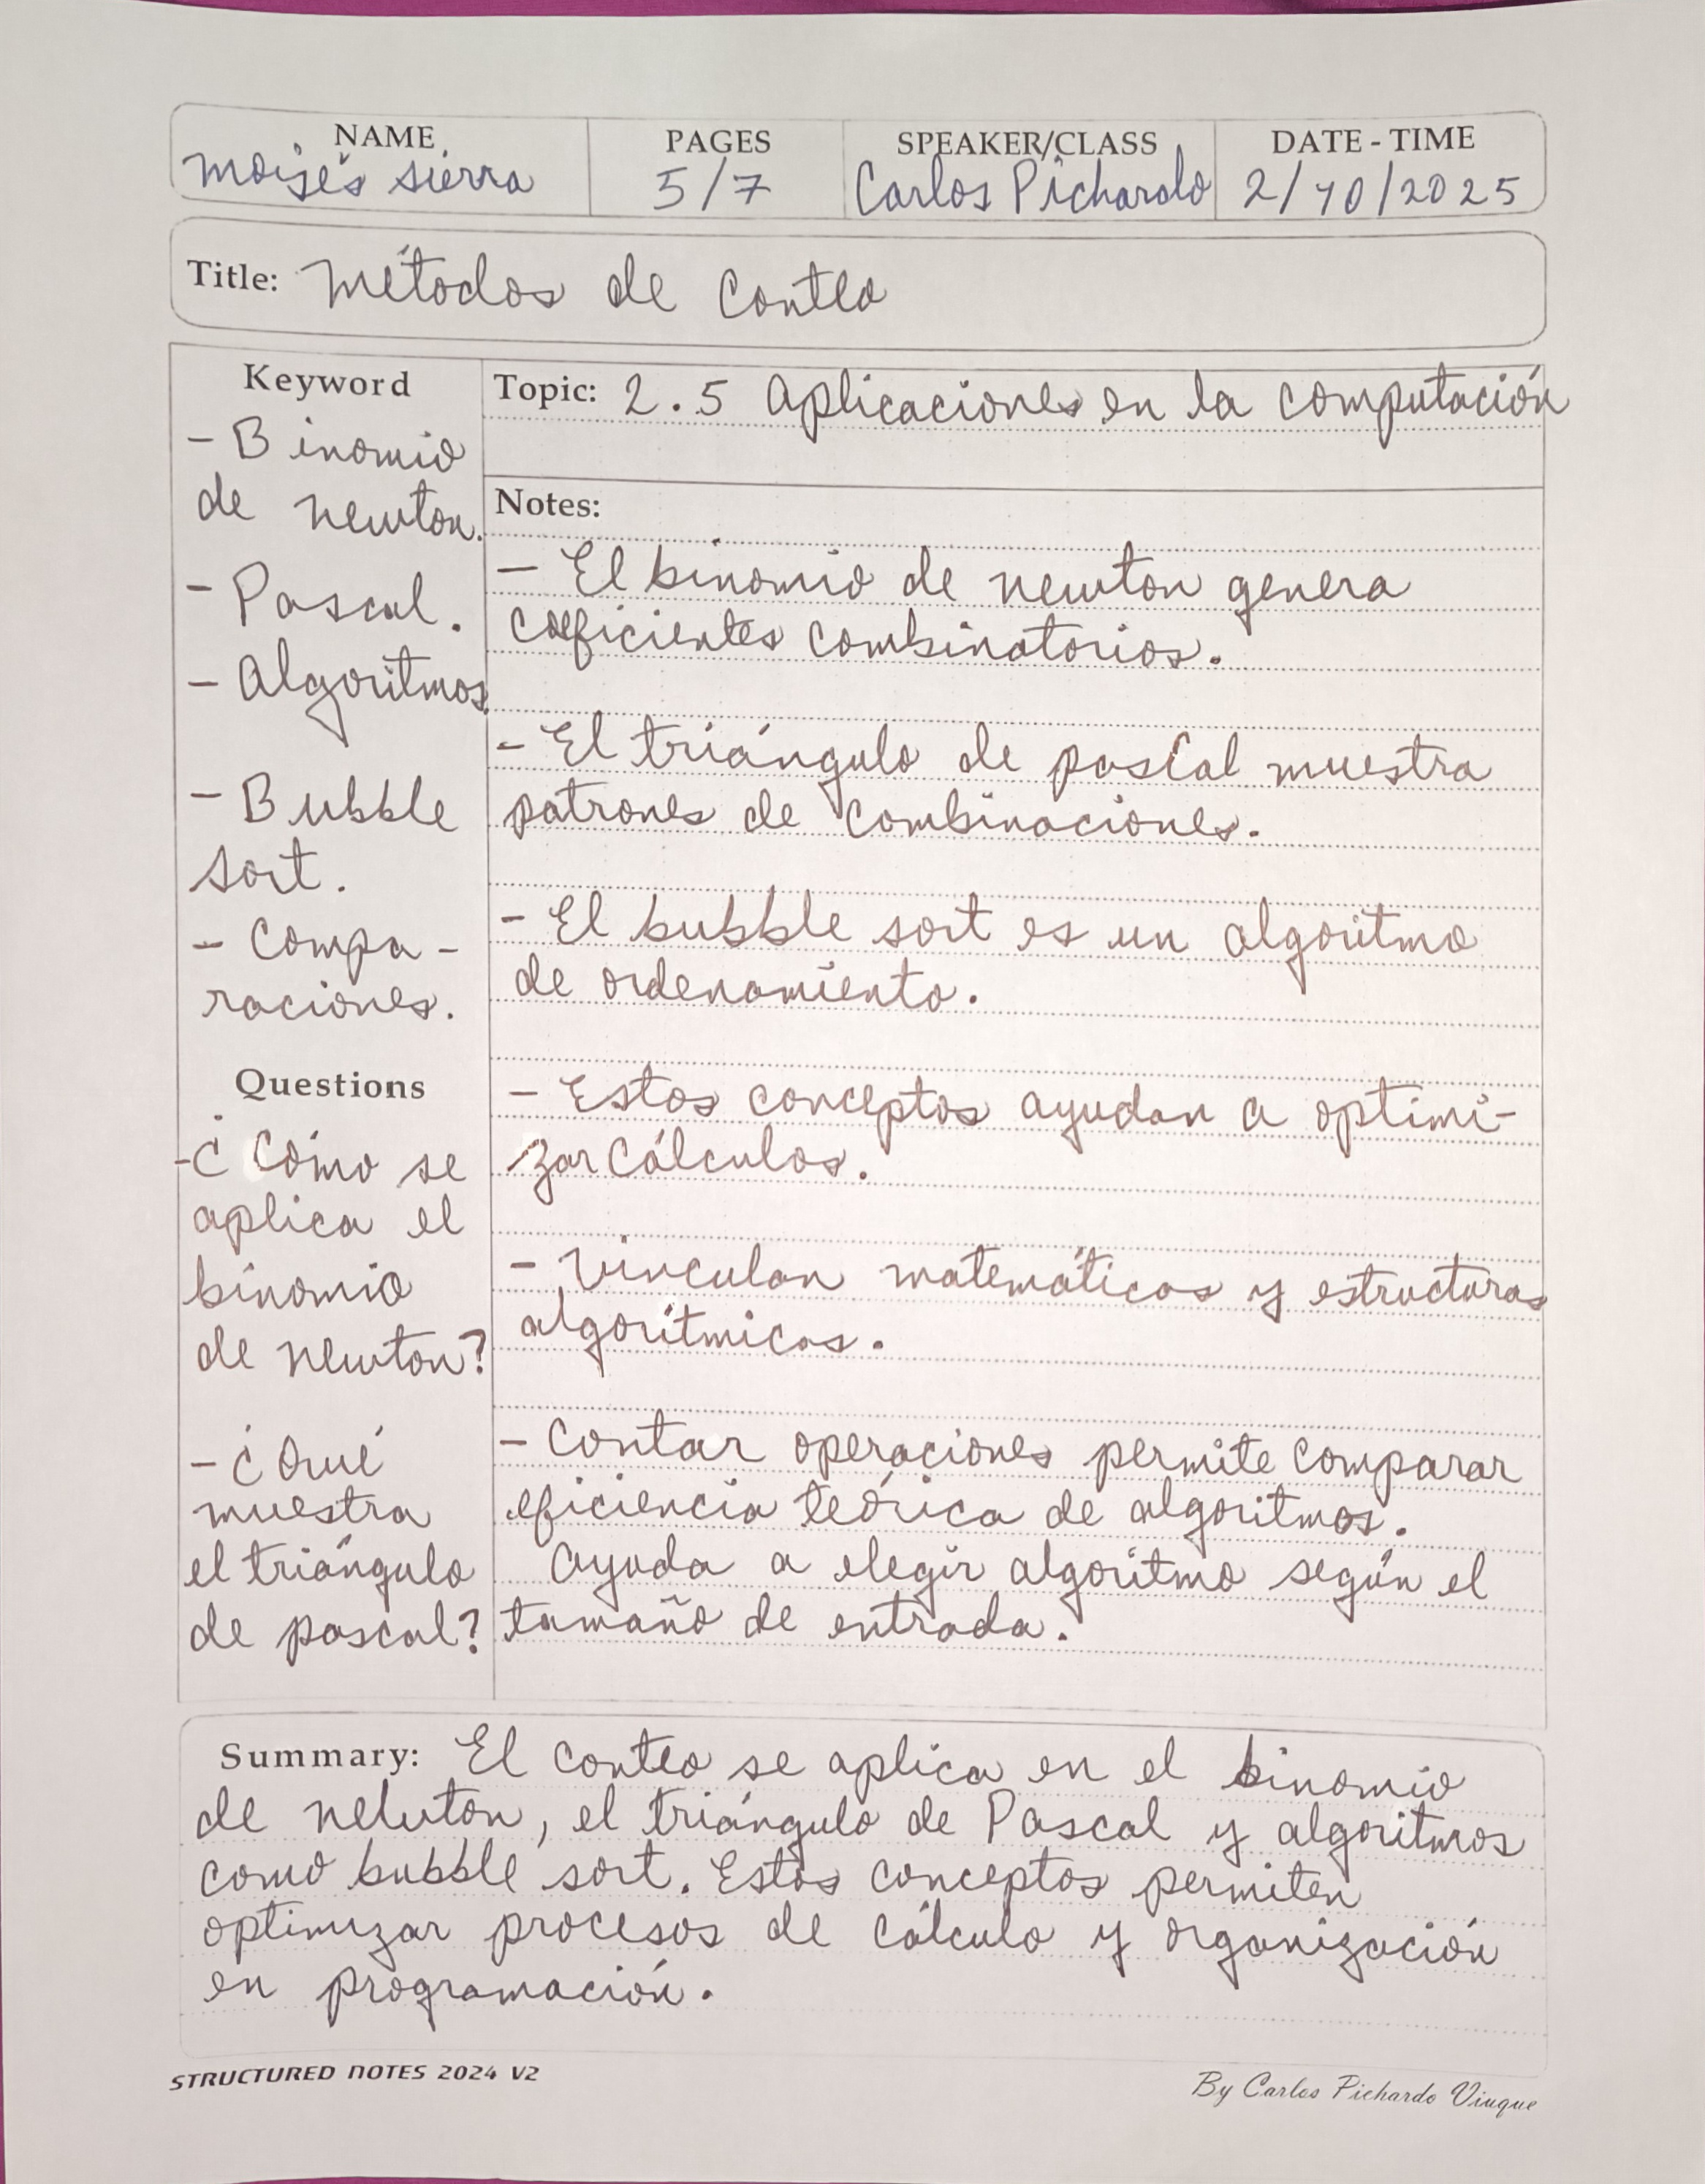 NAME PAGES SPEAKER/CLASS DATE - TIME
Moisés sierra 5/7 Carlos Pichardo 2/10/2025
Title: Métodos de Conteo
Keyword
- Binomio
de newton.
- Pascal.
- Algoritmos.
- Bubble
sort.
- Compa-
raciones.
Questions
-¿Cómo se
aplica el
binomio
de newton?
- ¿Qué
muestra
el triángulo
de pascal?
Topic: 2.5 Aplicaciones en la computación
Notes:
- El binomio de newton genera
coeficientes combinatorios.
- El triángulo de pascal muestra
patrones de combinaciones.
- El bubble sort es un algoritmo
de ordenamiento.
- Estos conceptos ayudan a optimi-
zar cálculos.
- Vinculan matemáticas y estructuras
algorítmicas.
- Contar operaciones permite comparar
eficiencia teórica de algoritmos.
Ayuda a elegir algoritmo según el
tamaño de entrada.
Summary: El conteo se aplica en el binomio
de newton, el triángulo de Pascal y algoritmos
como bubble sort. Estos conceptos permiten
optimizar procesos de cálculo y organización
en programación.
STRUCTURED NOTES 2024 V2
By Carlos Pichardo Viuque